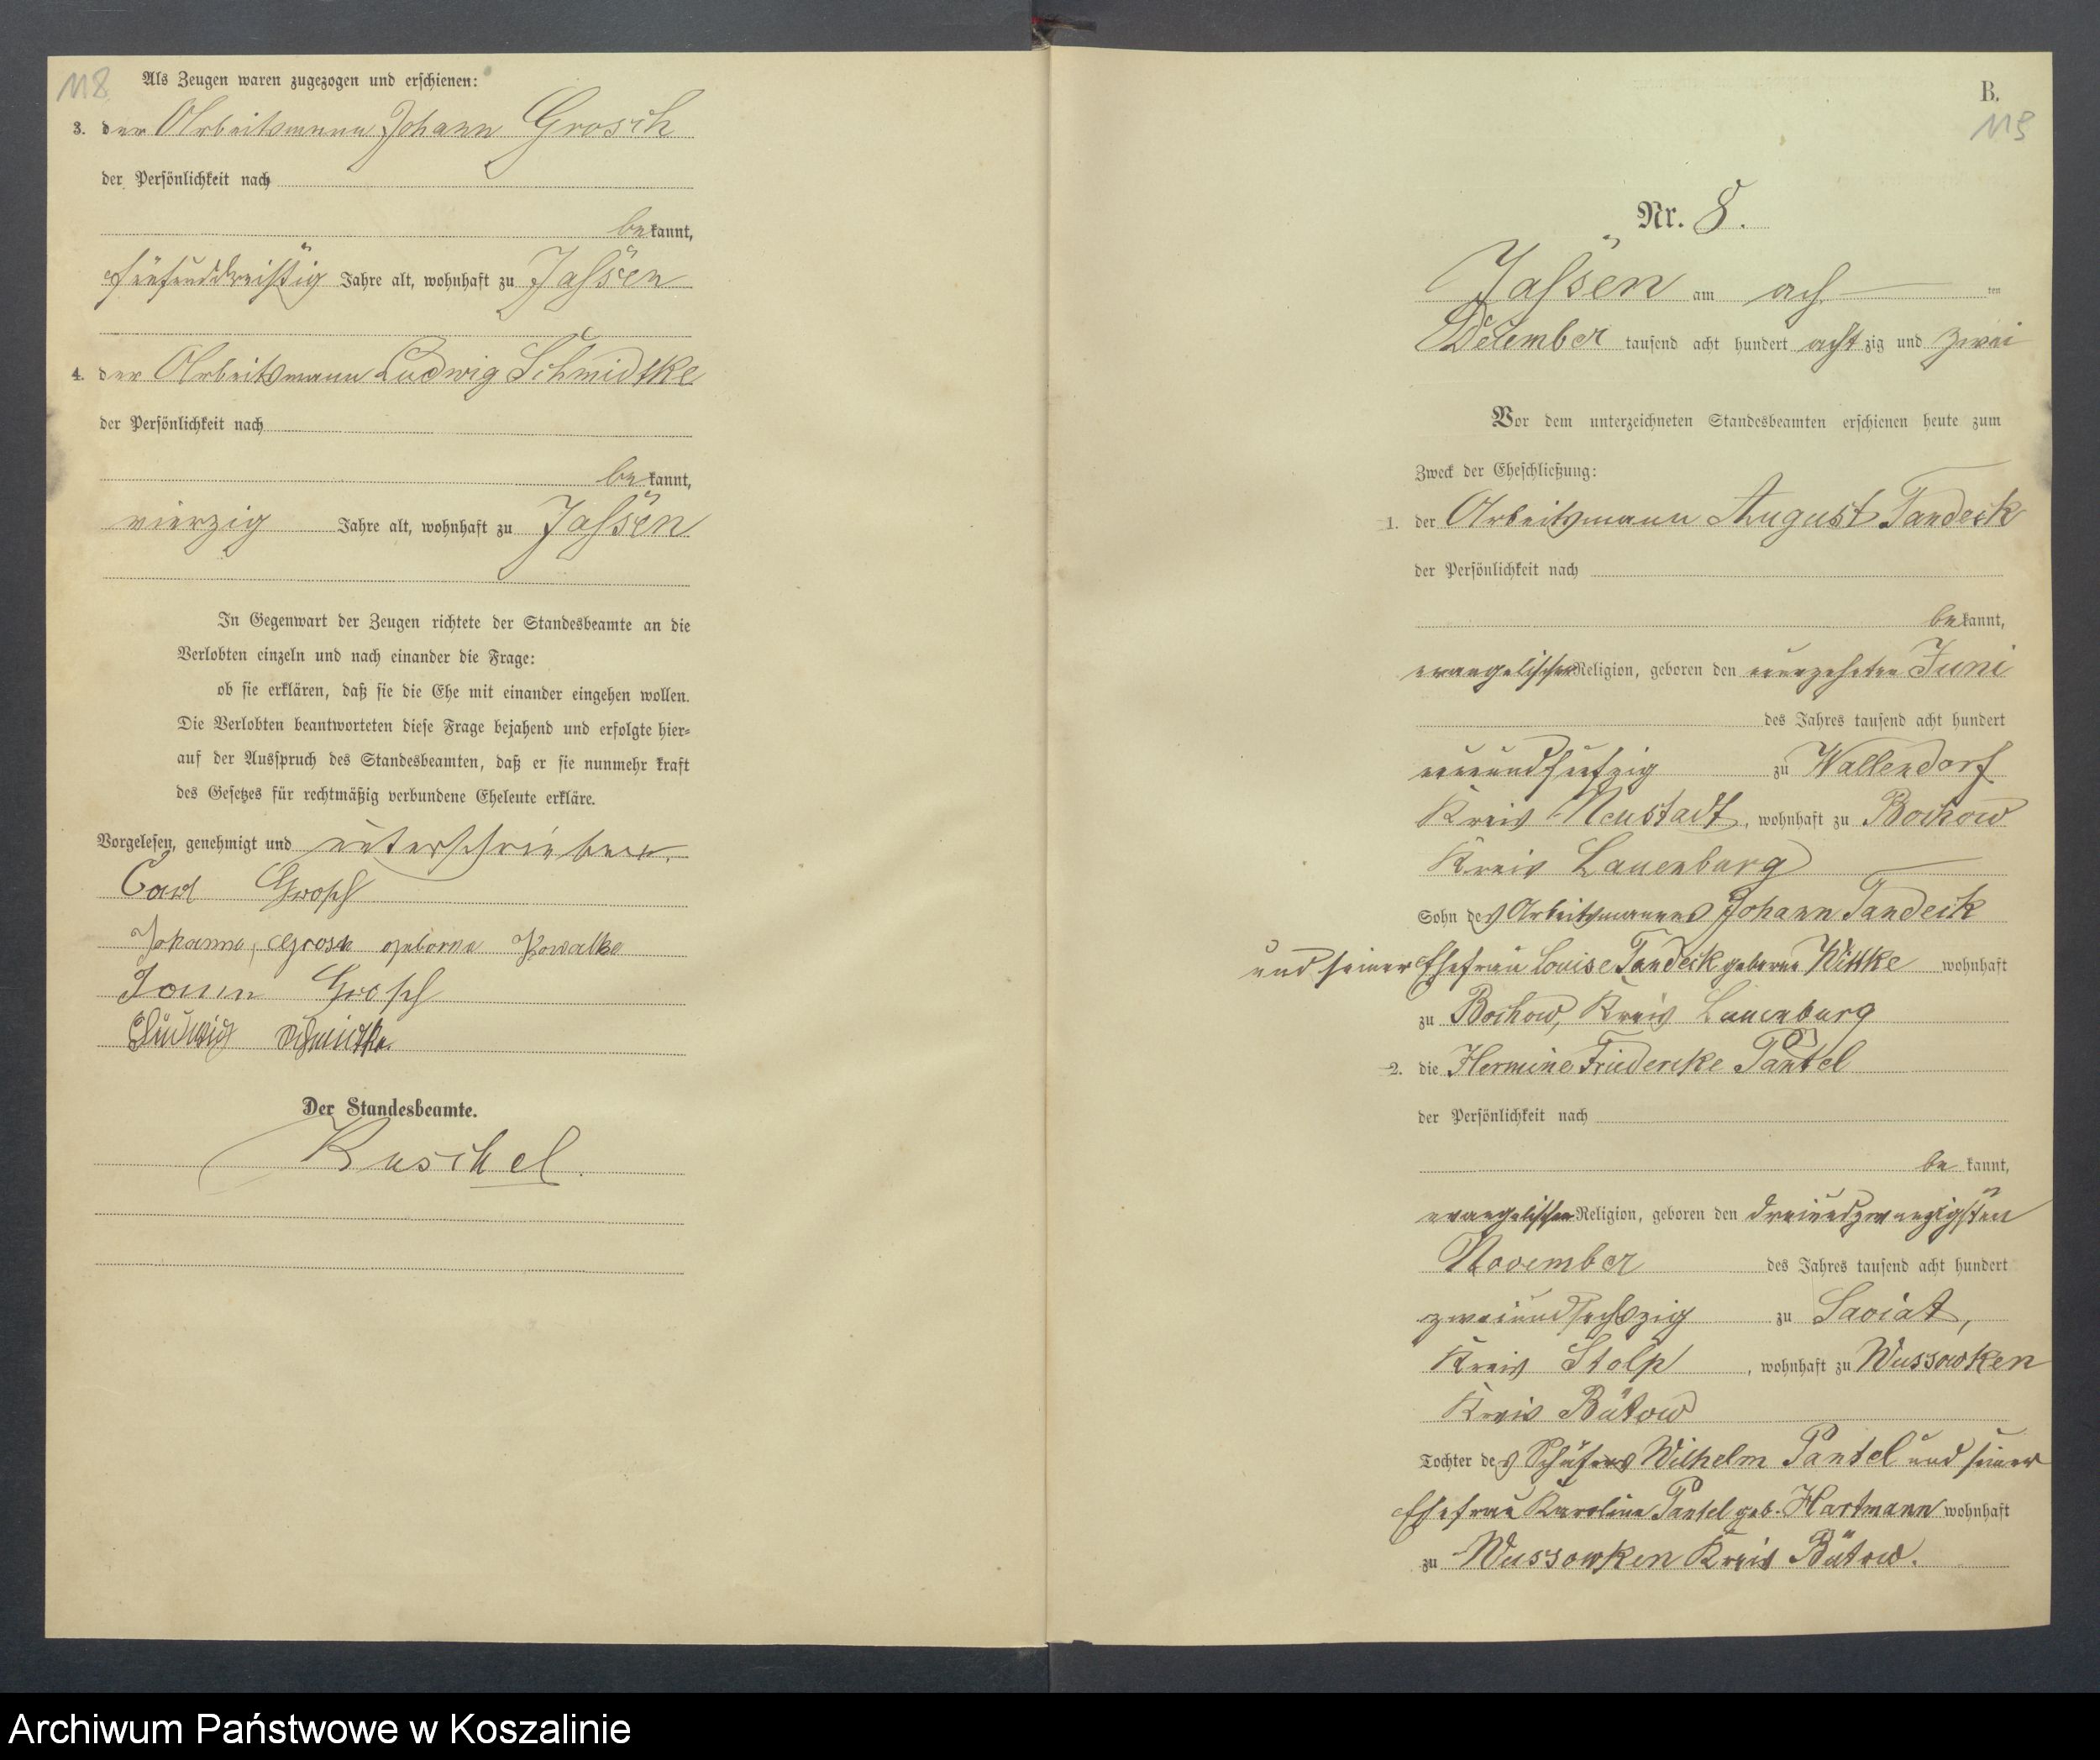 118
Als Zeugen waren zugezogen und erschienen:
3. der Arbeitsmann Johann Grosch
der Persönlichkeit nach
bekannt,
fünfunddreißig Jahre alt, wohnhaft zu Jassen
4. der Arbeitsmann Ludwig Schmidtke
der Persönlichkeit nach
bekannt,
vierzig Jahre alt, wohnhaft zu Jassen
In Gegenwart der Zeugen richtete der Standesbeamte an die
Verlobten einzeln und nach einander die Frage:
ob sie erklären, daß sie die Ehe mit einander eingehen wollen.
Die Verlobten beantworteten diese Frage bejahend und erfolgte hier-
auf der Ausspruch des Standesbeamten, daß er sie nunmehr kraft
des Gesetzes für rechtmäßig verbundene Eheleute erkläre.
Vorgelesen, genehmigt und unterschrieben.
Carl Grosch
Johanna, Grosch geborne Kowalke
Grosch
Ludwig Schmidtke
Der Standesbeamte.
Kuschel.
B.
119
Nr. 8.
Jassen am ach ten
December tausend acht hundert acht zig und zwei
Vor dem unterzeichneten Standesbeamten erschienen heute zum
Zweck der Eheschließung:
1. der Arbeitsmann August Tandeck
der Persönlichkeit nach
bekannt,
evangelischer Religion, geboren den Juni
des Jahres tausend acht hundert
neunundfünfzig zu Wallendorf
Kreis Neustadt, wohnhaft zu Bochow
Kreis Lauenburg
Sohn des Arbeitsmannes Johann Tandeck
und seiner Ehefrau Louise Tandeck geborne Wittke wohnhaft
zu Bochow, Kreis Lauenburg
2. die Hermine Friedericke Pantel
der Persönlichkeit nach
be kannt,
evangelischer Religion, geboren den dreiundzwanzigsten
November des Jahres tausend acht hundert
zweiundsechszig zu Saviat,
Kreis Stolp, wohnhaft zu Wussowken
Kreis Bütow
Tochter des Schäfers Wilhelm Pantel und seiner
Ehefrau Karoline Pantel geb. Hartmann wohnhaft
zu Wussowken Kreis Bütow.
Archiwum Państwowe w Koszalinie